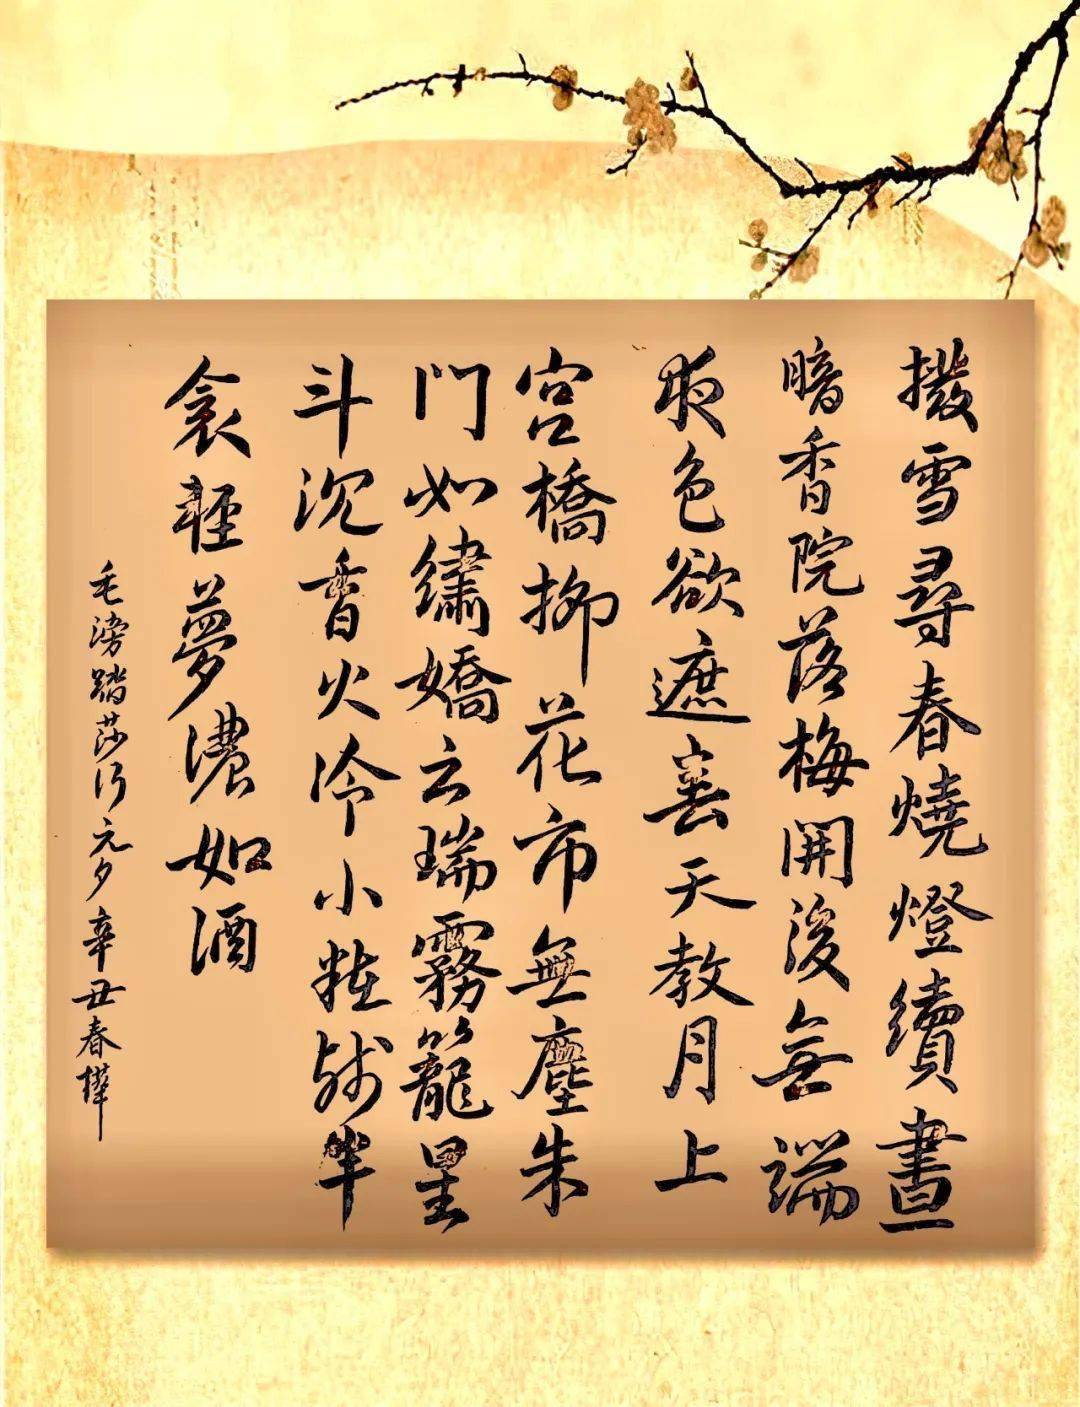 撥雪尋春燒燈續晝
暗香院落梅開後無端
夜色欲遮春天教月上
宮橋柳花市無塵朱
門如繡嬌云瑞霧籠星
斗沉香火冷小粧殘半
衾輕夢濃如酒
毛滂踏莎行元夕辛丑春樺